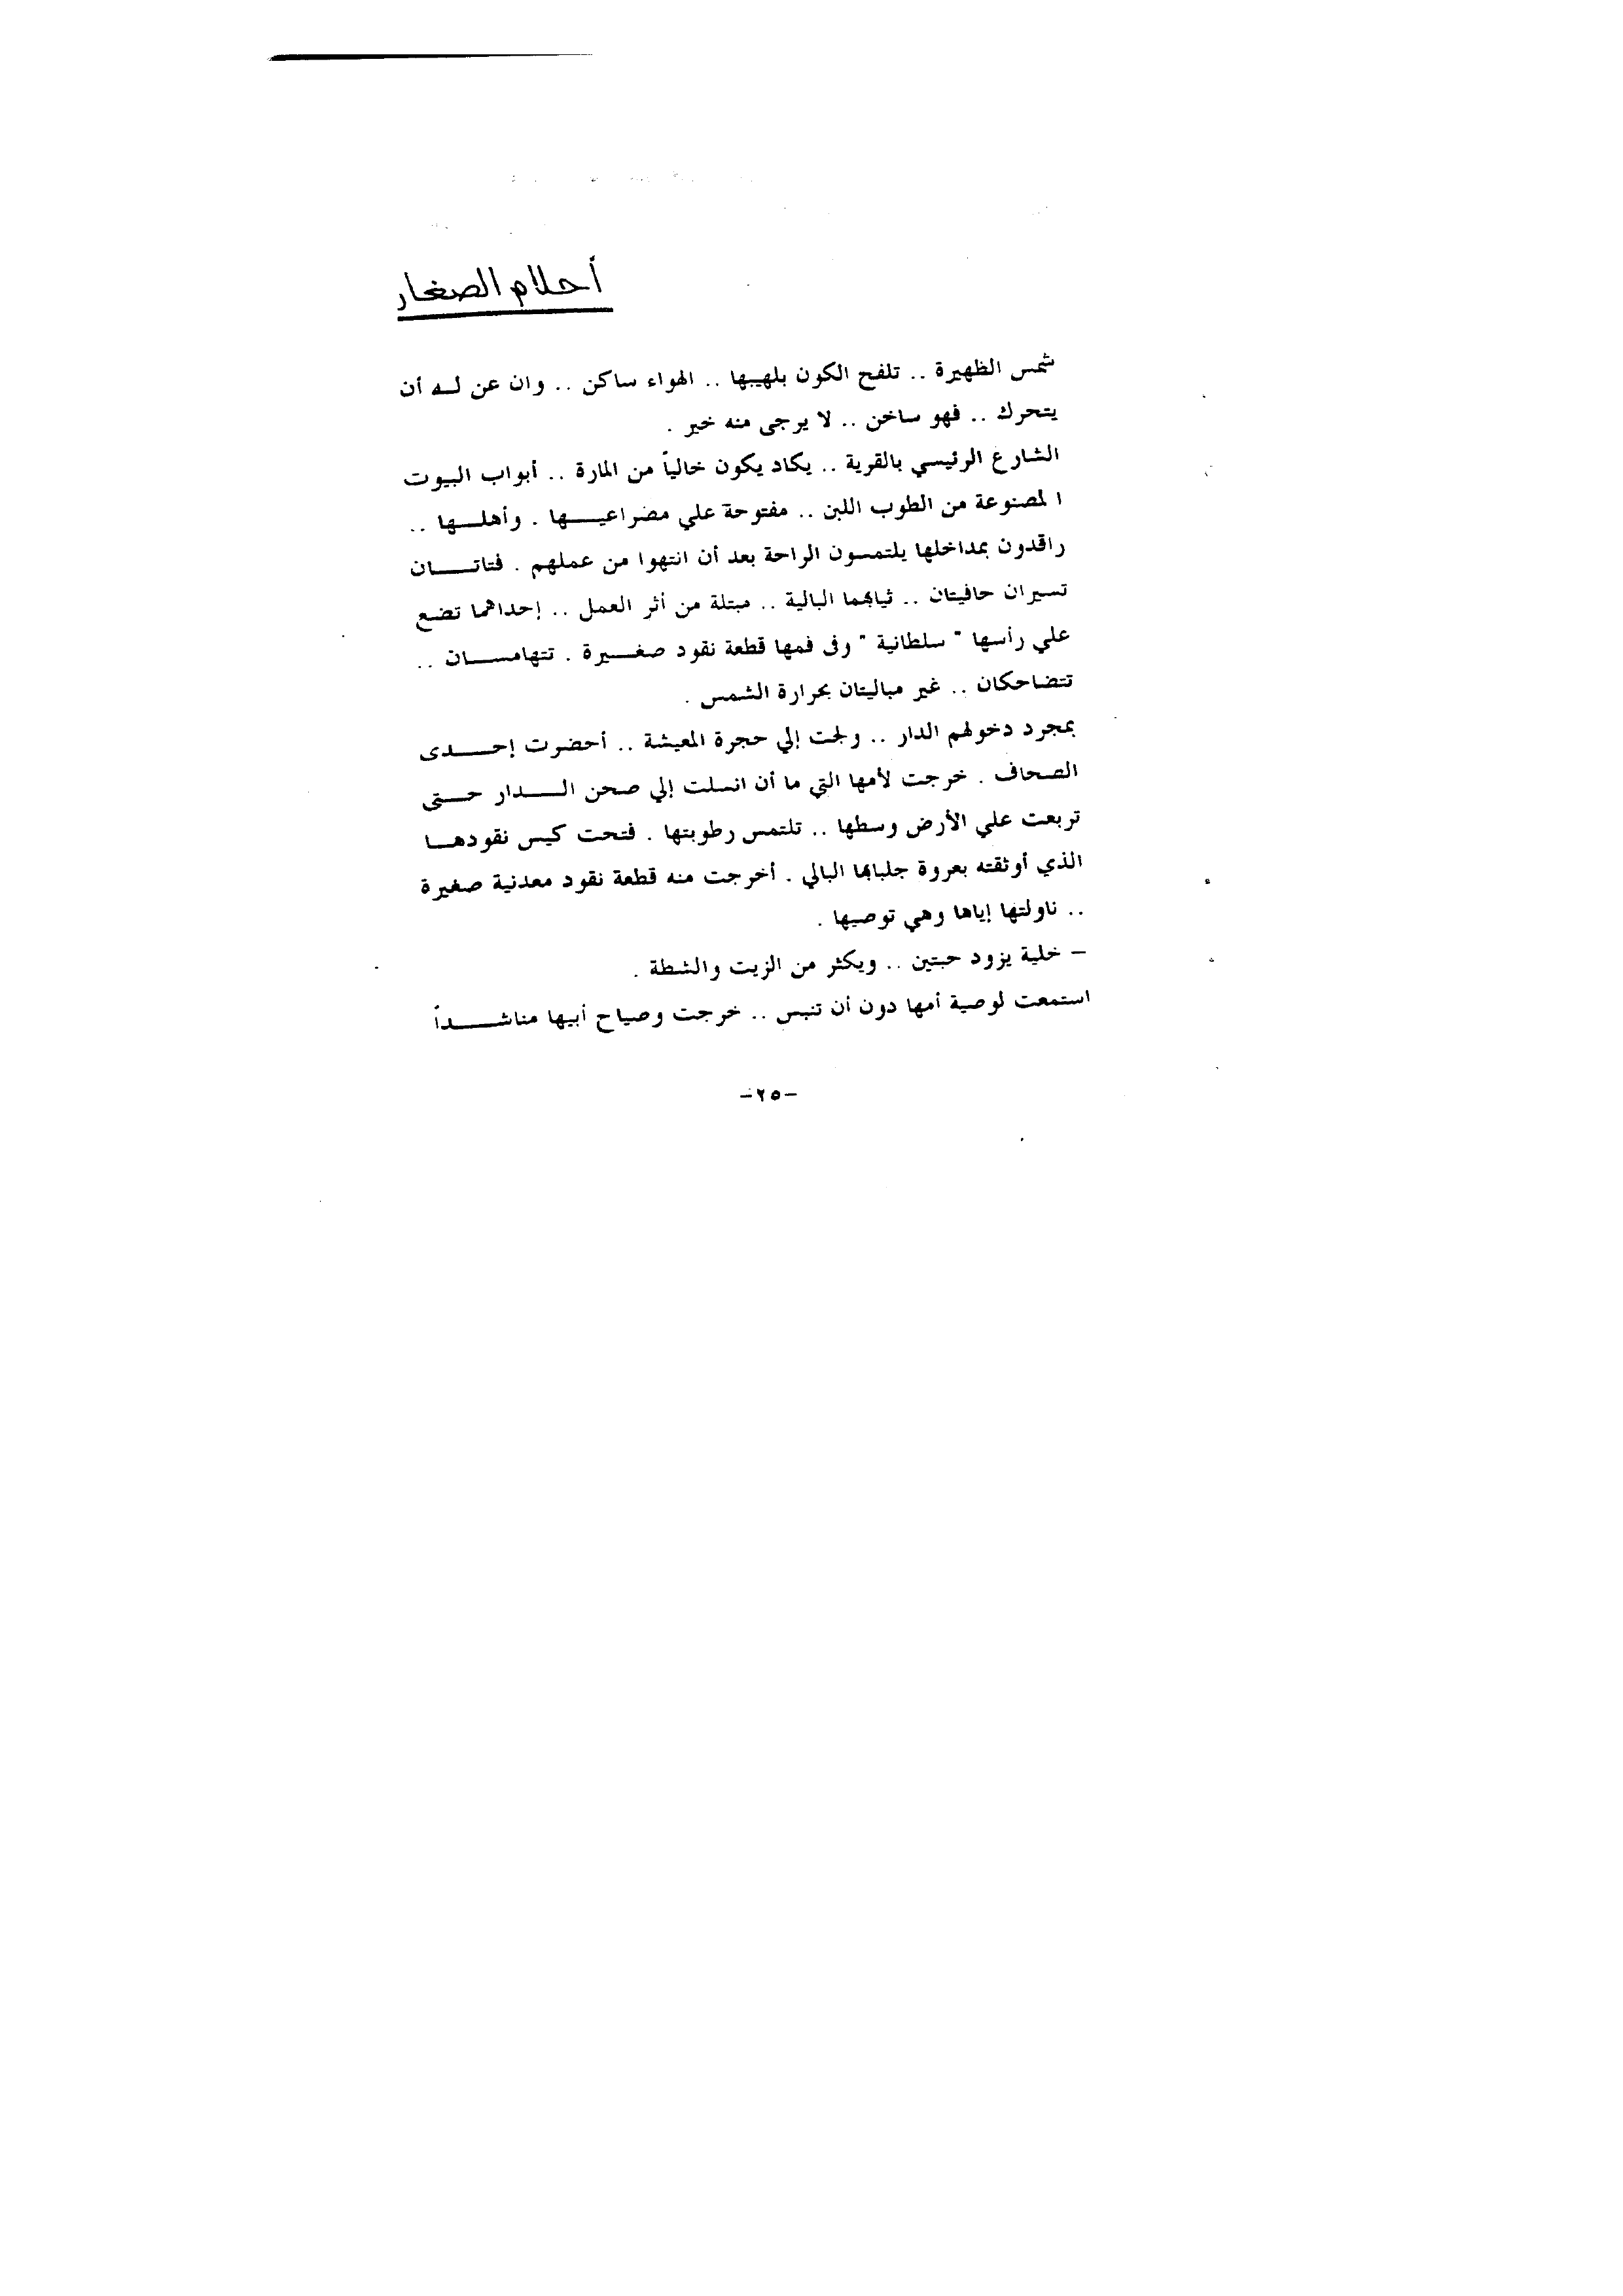 أحلام الصغار
شمس الظهيرة .. تلفح الكون بلهيبها .. الهواء ساكن .. وان عن له أن
يتحرك .. فهو ساخن .. لا يرجى منه خير .
الشارع الرئيسي بالقرية .. يكاد يكون خالياً من المارة .. أبواب البيوت
المصنوعة من الطوب اللبن .. مفتوحة علي مضراعيها . وأهلها ..
راقدون بمداخلها يلتمسون الراحة بعد أن انتهوا من عملهم . فتاتان
تسيران حافيتان .. ثيابهما البالية .. مبتلة من أثر العمل .. إحداهما تضع
علي رأسها " سلطانية " وفى فمها قطعة نقود صغيرة . تتهامسان ..
تتضاحكان .. غير مباليتان بحرارة الشمس .
بمجرد دخولهم الدار .. ولجت إلي حجرة المعيشة .. أحضرت إحدى
الصحاف . خرجت لأمها التي ما أن انسلت إلي صحن الدار حتى
تربعت علي الأرض وسطها .. تلتمس رطوبتها . فتحت كيس نقودها
الذي أوثقته بعروة جلبابها البالي . أخرجت منه قطعة نقود معدنية صغيرة
.. ناولتها إياها وهي توصيها .
– خلية يزود حبتين .. ويكثر من الزيت والشطة .
استمعت لوصية أمها دون أن تنبس .. خرجت وصياح أبيها مناشداً
-٢٥-